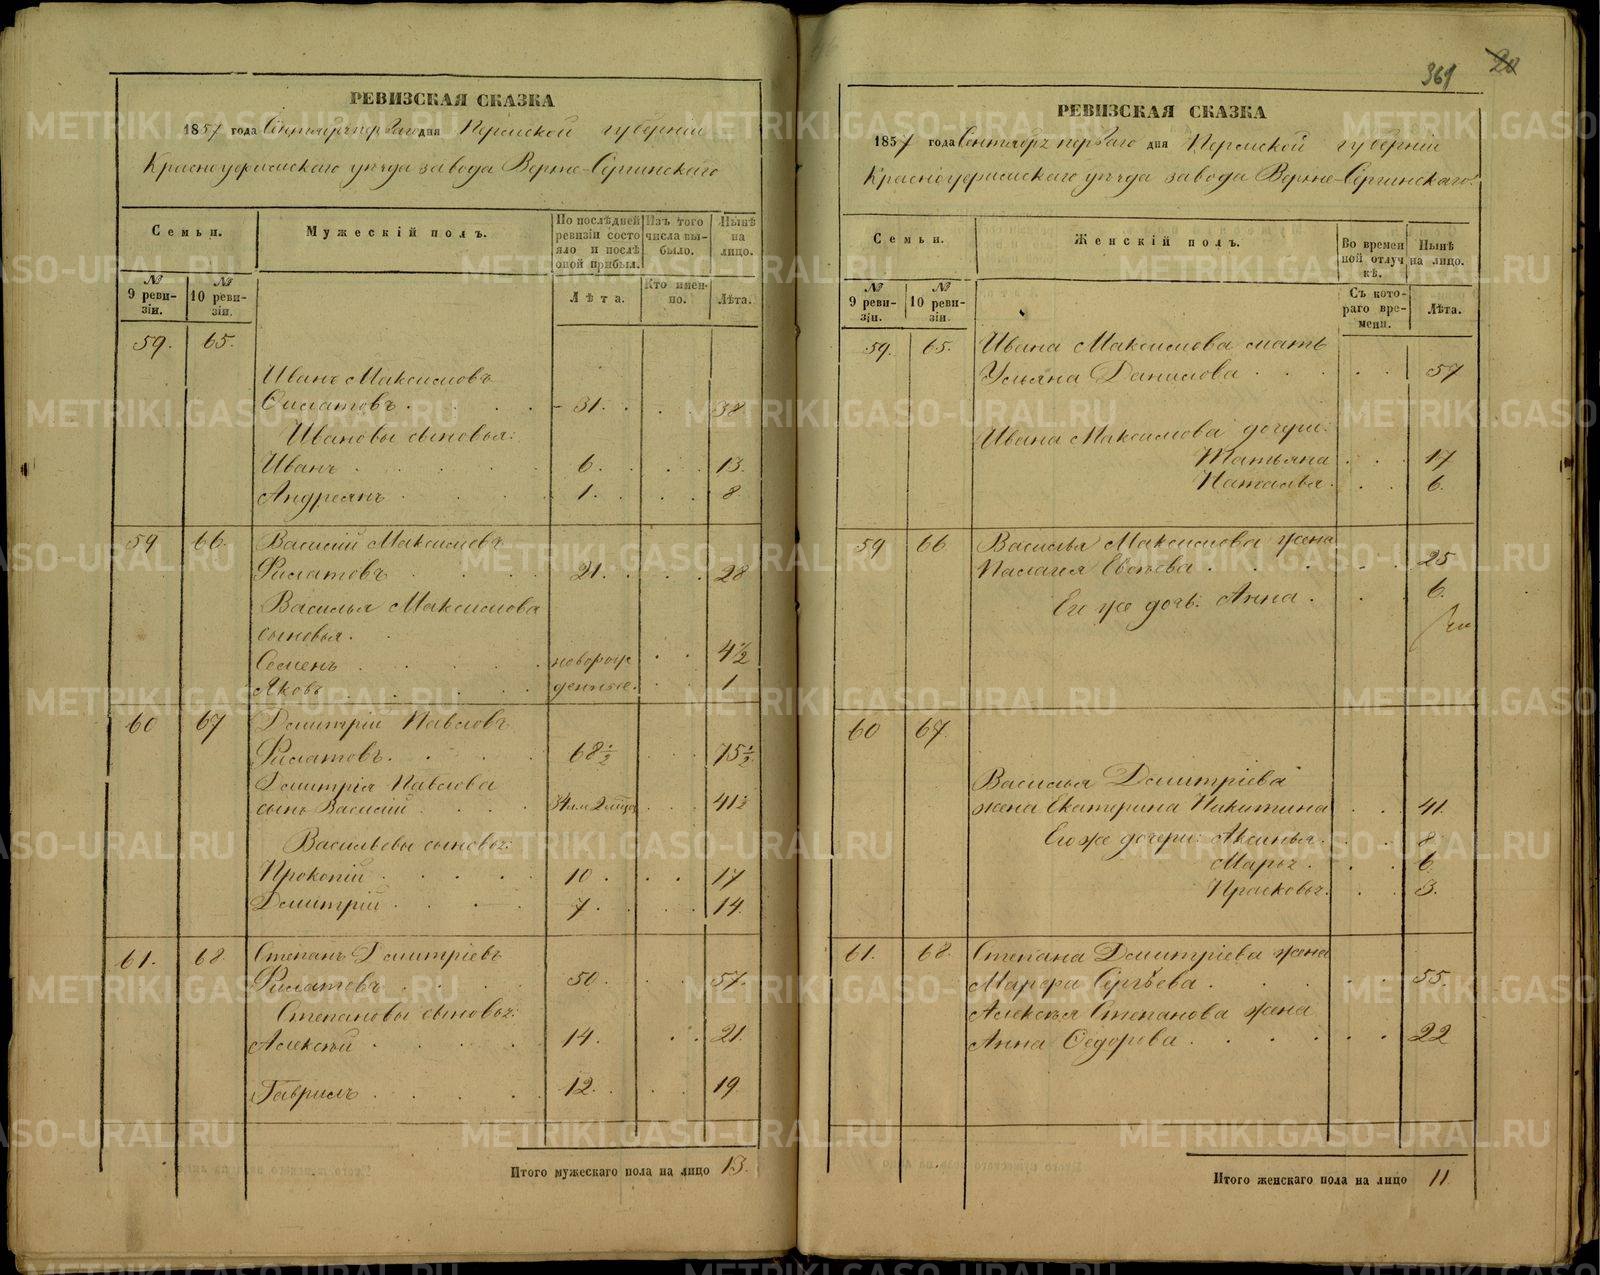 РЕВИЗСКАЯ СКАЗКА
1857 года Сентября перваго дня Пермской губерніи
Красноуфимскаго уѣзда завода Верхне-Сергинскаго
Семьи.
Мужескій полъ.
По послѣдней ревизіи состояло и послѣ оной прибыл.
Изъ того числа выбыло.
Нынѣ на лицо.
№ 9 ревизіи.
№ 10 ревизіи.
Лѣта.
Кто именно.
Лѣта.
59. 65.
Иванъ Максимовъ
31. 38
Ивановы сыновья:
Иванъ 6. 13.
Андреянъ 1. 8
59 66. Василій Максимовъ
21. 28
Василья Максимова
сыновья.
Семенъ новорож 4 1/2
Яковъ денные. 1
60 67 Дмитрій Павловъ
68 1/2 75 1/2
Дмитрія Павлова
сынъ Василій 41 1/2
Васильевы сыновья:
Прокопій 10 17
Дмитрій 7. 14.
61. 68. Степанъ Дмитріевъ
50. 57.
Степановы сыновья:
Алексѣй 14. 21.
Гаврилъ 12. 19
Итого мужескаго пола на лицо 13.
361 20
РЕВИЗСКАЯ СКАЗКА
1857 года Сентября перваго дня Пермской губерніи
Красноуфимскаго уѣзда завода Верхне-Сергинскаго.
Семьи.
Женскій полъ.
Во временной отлучкѣ.
Нынѣ на лицо.
№ 9 ревизіи.
№ 10 ревизіи.
Съ котораго времени.
Лѣта.
59. 65. Ивана Максимова мать
Ульяна Данилова 57
Ивана Максимова дочери:
Татьяна 17
Наталья 6.
59 66. Василья Максимова жена
Палагея 25
Его же дочь: Анна 6.
60 67.
Василья Дмитріева
жена Екатерина Никитина 41.
Его же дочери: Аксинья 8
Марья 6
Прасковья 3.
61. 68. Степана Дмитріева жена
Марфа Сергѣева 55.
Алексѣя Степанова жена
Анна Ѳедорова 22
Итого женскаго пола на лицо 11
METRIKI.GASO-URAL.RU